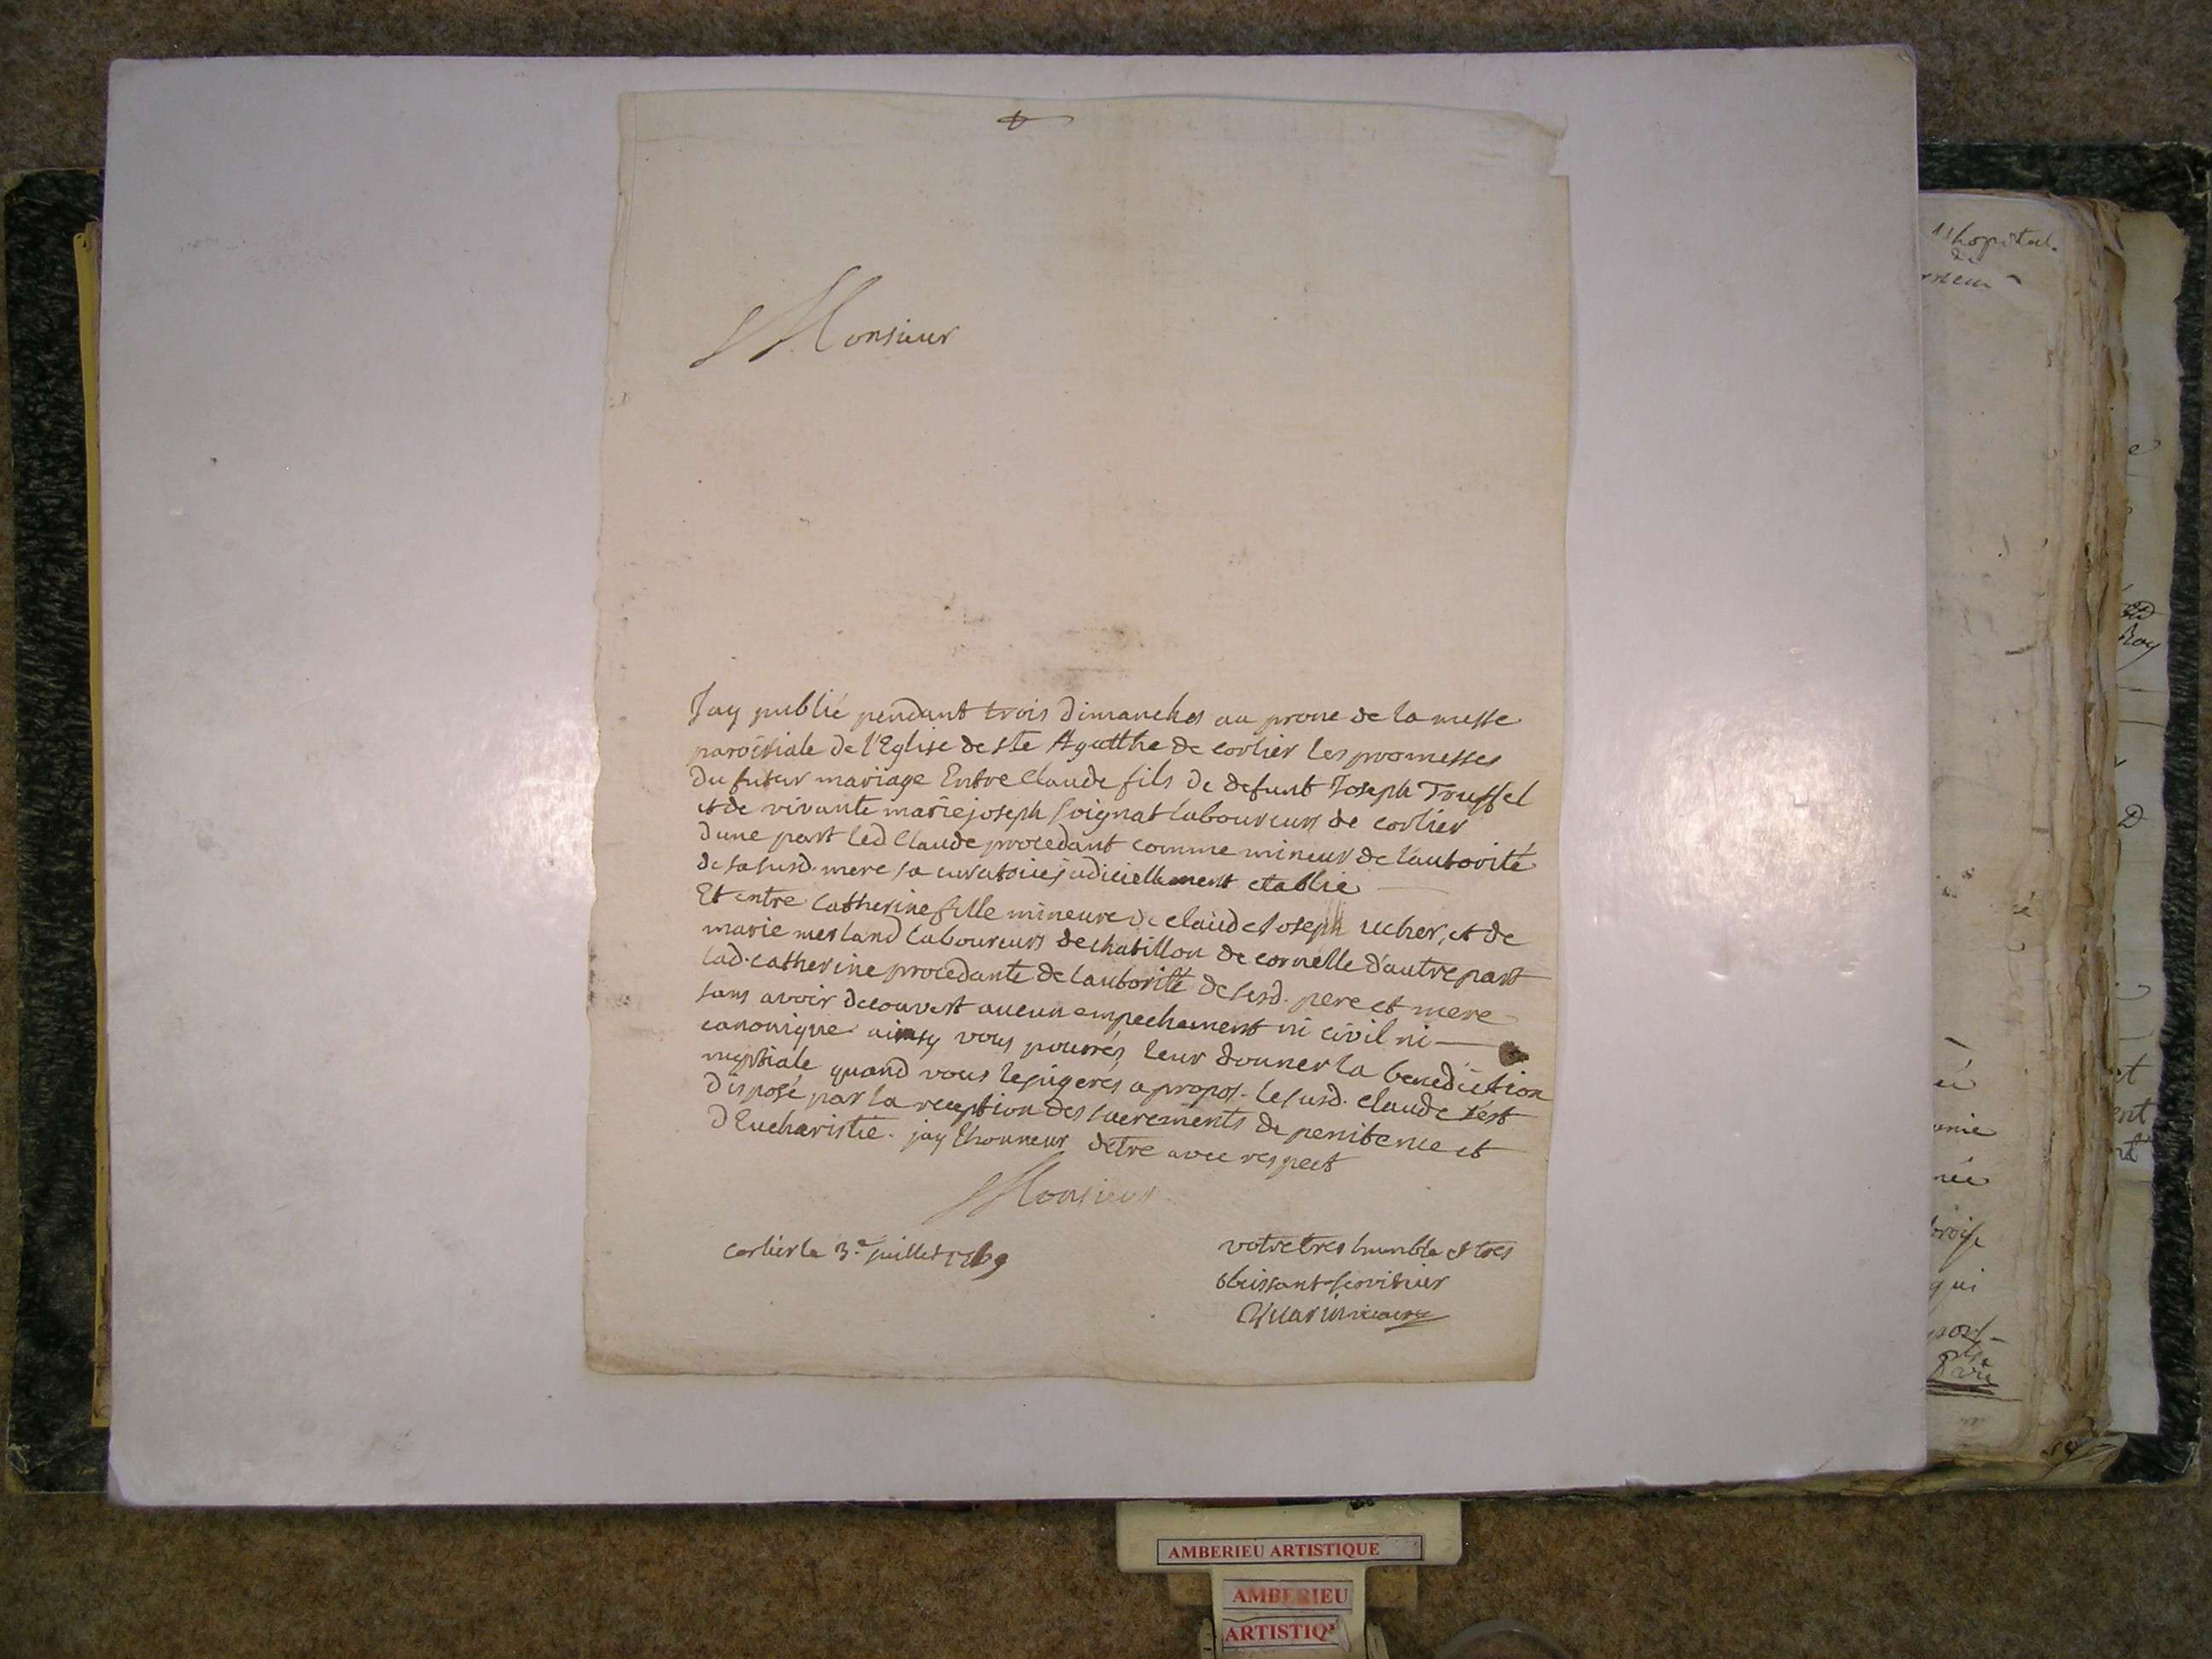 Monsieur
Jay publié pendant trois dimanches au prone de la messe
paroissiale de l'Eglise de ste Agatthe de corlier les promesses
du futur mariage Entre Claude fils de defunt Joseph Truffel
et de vivante marie joseph soignat laboureurs de corlier
dune part led Claude procedant comme mineur de l'autorité
de sa susd. mere sa curatrice judiciellement etablie
Et entre Catherine fille mineure de claude Joseph ucher, et de
marie merland laboureurs de chatillon de cornelle d'autre part
lad. catherine procedante de l'autorité de sesd. pere et mere
sans avoir decouvert aucun empechement ni civil ni
canonique ainsy vous pourrés leur donner la benediction
nuptiale quand vous le jugerés a propos. le susd. claude s'est
disposé par la reception des sacrements de penitence et
d'Eucharistie. jay l'honneur detre avec respect
Monsieur
corlier le 3.e juillet 1769
votre tres humble et tres
obeissant serviteur
1s hopital.
de
Roy
qui
AMBERIEU ARTISTIQUE
AMBERIEU
ARTISTIQ